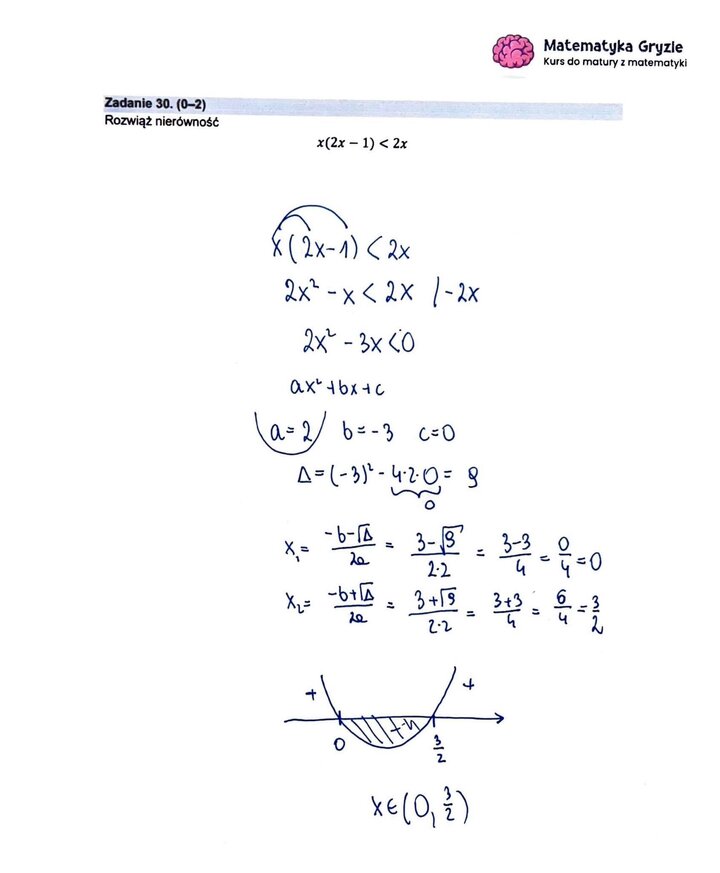 Matematyka Gryzie
Kurs do matury z matematyki
Zadanie 30. (0–2)
Rozwiąż nierówność
x(2x − 1) < 2x
x(2x-1) < 2x
2x² - x < 2x /-2x
2x² - 3x < 0
ax² + bx + c
a = 2 b = -3 c = 0
Δ = (-3)² - 4·2·0 = 9
0
x₁ = (-b-√Δ)/2a = (3-√9)/(2·2) = (3-3)/4 = 0/4 = 0
x₂ = (-b+√Δ)/2a = (3+√9)/(2·2) = (3+3)/4 = 6/4 = 3/2
+ +
0 3/2
x∈(0, 3/2)